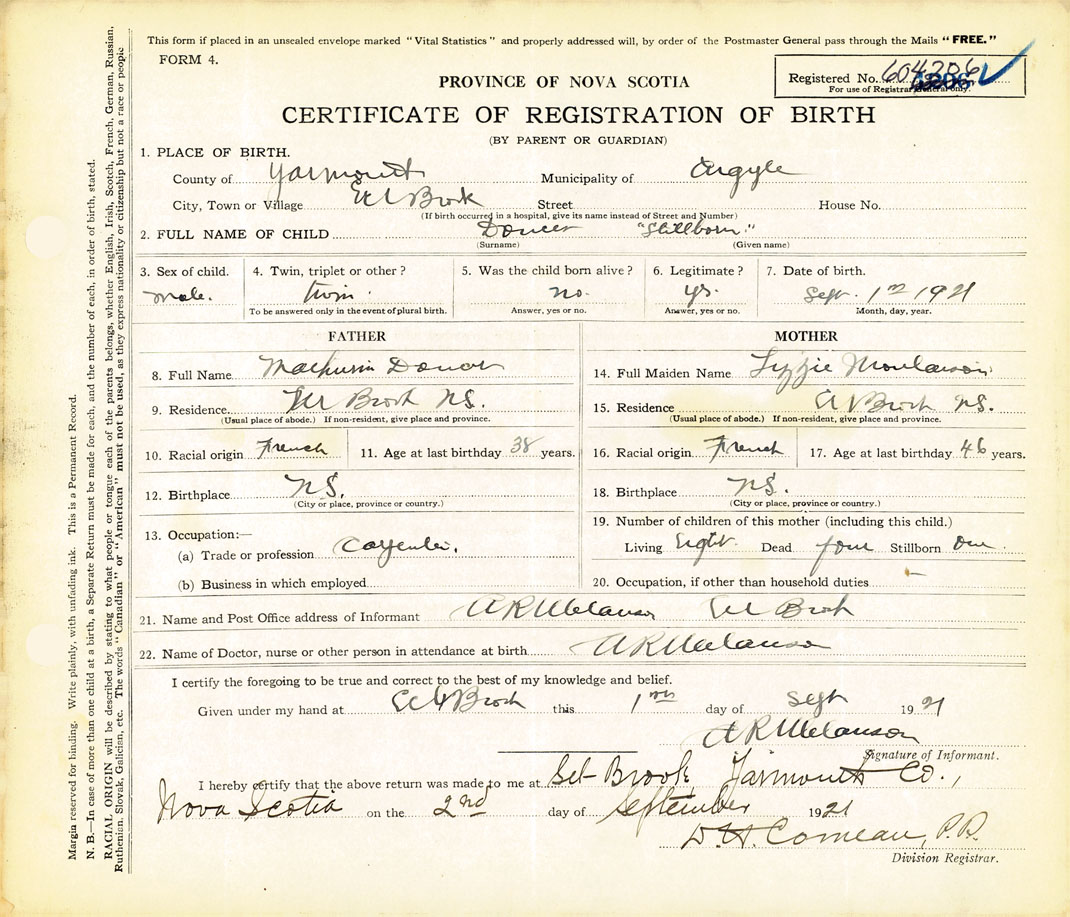 This form if placed in an unsealed envelope marked "Vital Statistics" and properly addressed will, by order of the Postmaster General pass through the Mails "FREE."
FORM 4.
Registered No. 604206
For use of Registrar General only.
PROVINCE OF NOVA SCOTIA
CERTIFICATE OF REGISTRATION OF BIRTH
(BY PARENT OR GUARDIAN)
1. PLACE OF BIRTH.
County of Yarmouth Municipality of Argyle
City, Town or Village Eel Brook Street House No.
(If birth occurred in a hospital, give its name instead of Street and Number)
2. FULL NAME OF CHILD Doucet "Stillborn"
(Surname) (Given name)
3. Sex of child. 4. Twin, triplet or other? 5. Was the child born alive? 6. Legitimate? 7. Date of birth.
male. twin. no. yes. Sept. 1st 1921
To be answered only in the event of plural birth. Answer, yes or no. Answer, yes or no. Month, day, year.
FATHER MOTHER
8. Full Name Mathurin Doucet 14. Full Maiden Name Lizzie
9. Residence Eel Brook N.S. 15. Residence Eel Brook N.S.
(Usual place of abode.) If non-resident, give place and province. (Usual place of abode.) If non-resident, give place and province.
10. Racial origin French 11. Age at last birthday 38 years. 16. Racial origin French 17. Age at last birthday 46 years.
12. Birthplace N.S. 18. Birthplace N.S.
(City or place, province or country.) (City or place, province or country.)
13. Occupation:— 19. Number of children of this mother (including this child.)
(a) Trade or profession Carpenter. Living Eight Dead four Stillborn one
(b) Business in which employed 20. Occupation, if other than household duties –
21. Name and Post Office address of Informant A R Melanson Eel Brook
22. Name of Doctor, nurse or other person in attendance at birth A R Melanson
I certify the foregoing to be true and correct to the best of my knowledge and belief.
Given under my hand at Eel Brook this 1st day of Sept 1921
A R Melanson
Signature of Informant.
I hereby certify that the above return was made to me at Eel-Brook, Yarmouth Co.,
Nova Scotia on the 2nd day of September 1921
D. H. Comeau, P.R.
Division Registrar.
Margin reserved for binding. Write plainly, with unfading ink. This is a Permanent Record.
N. B.—In case of more than one child at a birth, a Separate Return must be made for each, and the number of each, in order of birth, stated.
RACIAL ORIGIN will be described by stating to what people or tongue each of the parents belongs, whether English, Irish, Scotch, French, German, Russian,
Ruthenian, Slovak, Galician, etc. The words "Canadian" or "American" must not be used, as they express nationality or citizenship but not a race or people